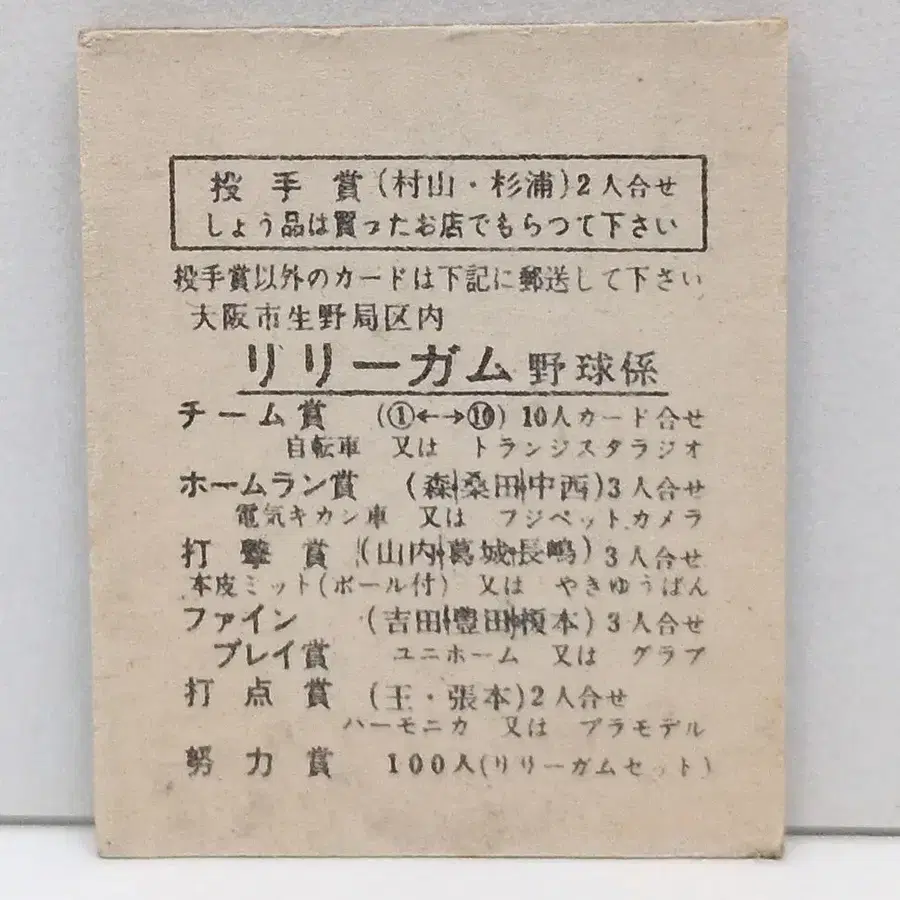 投手賞(村山・杉浦)2人合せ
しょう品は買ったお店でもらつて下さい
投手賞以外のカードは下記に郵送して下さい
大阪市生野局区内
リリーガム野球係
チーム賞 (①←→⑩)10人カード合せ
自転車 又は トランジスタラジオ
ホームラン賞 (森・桑田・中西)3人合せ
電気キカン車 又は フジペットカメラ
打撃賞 (山内・葛城・長嶋)3人合せ
本皮ミット(ボール付) 又は やきゆうばん
ファイン (吉田・豊田・榎本)3人合せ
プレイ賞 ユニホーム 又は グラブ
打点賞 (王・張本)2人合せ
ハーモニカ 又は プラモデル
努力賞 100人(リリーガムセット)